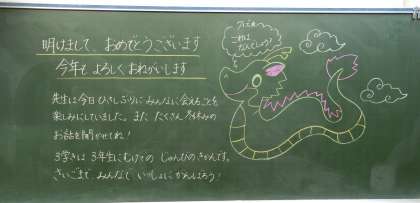 明けまして、おめでとうございます
今年も よろしく おねがいします
先生は今日 ひさしぶりに みんなに会えることを
楽しみにしていました。また たくさん 冬休みの
お話を聞かせてね!
3学きは 3年生にむけての じゅんびのきかんです。
さいごまで みんなで いっしょに がんばろう!
これは
なんでしょう?